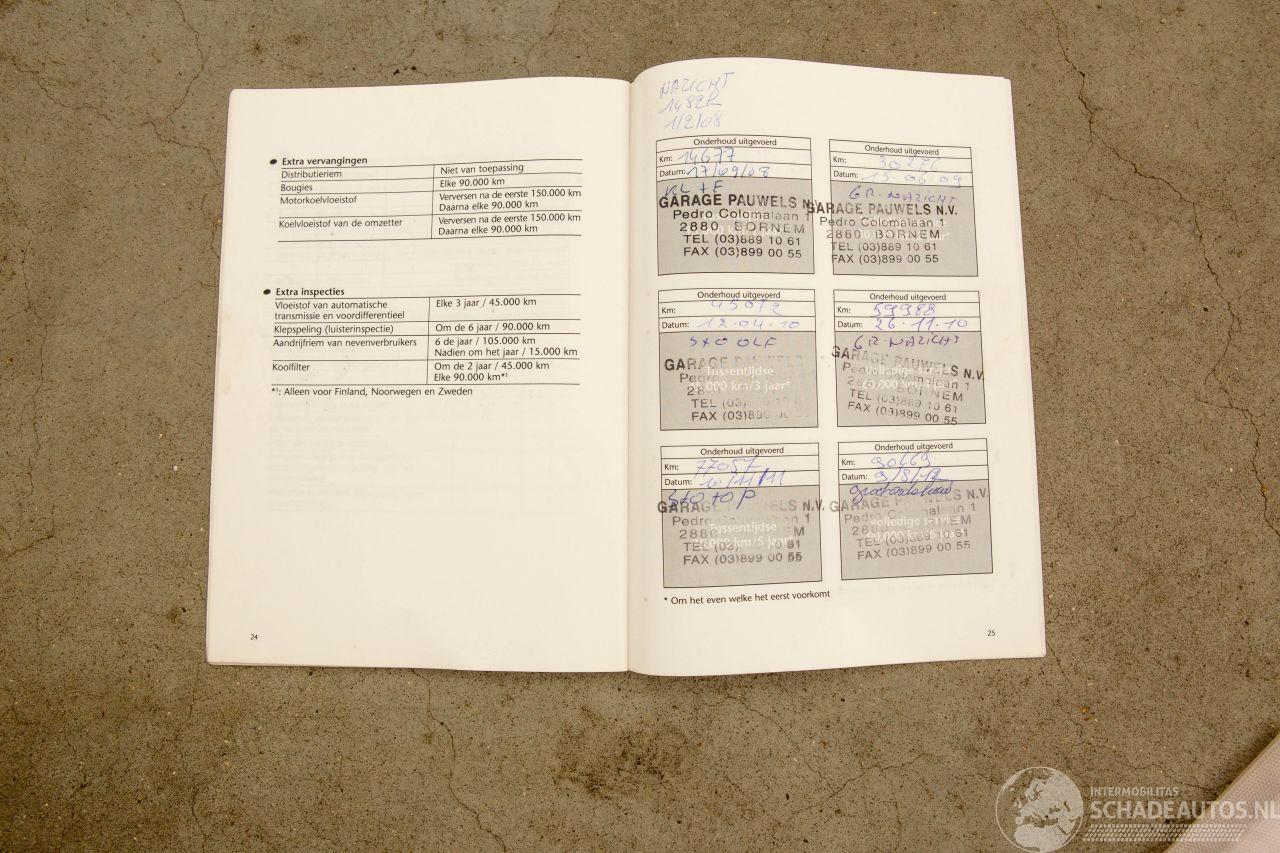 Extra vervangingen
Distributieriem Niet van toepassing
Bougies Elke 90.000 km
Motorkoelvloeistof Verversen na de eerste 150.000 km
Daarna elke 90.000 km
Koelvloeistof van de omzetter Verversen na de eerste 150.000 km
Daarna elke 90.000 km
Extra inspecties
Vloeistof van automatische Elke 3 jaar / 45.000 km
transmissie en voordifferentieel
Klepspeling (luisterinspectie) Om de 6 jaar / 90.000 km
Aandrijfriem van nevenverbruikers 6 de jaar / 105.000 km
Nadien om het jaar / 15.000 km
Koolfilter Om de 2 jaar / 45.000 km
Elke 90.000 km*¹
*¹: Alleen voor Finland, Noorwegen en Zweden
24
NAZICHT
1/2/08
Onderhoud uitgevoerd
Km: 14677
Datum: 17/09/08
GARAGE PAUWELS N.V.
Pedro Colomalaan 1
2880 BORNEM
TEL (03)889 10 61
FAX (03)899 00 55
Onderhoud uitgevoerd
Km:
Datum: 15.06.09
GR.NAZICHT
GARAGE PAUWELS N.V.
Pedro Colomalaan 1
2880 BORNEM
TEL (03)889 10 61
FAX (03)899 00 55
Onderhoud uitgevoerd
Km:
Datum: 12.04.10
GARAGE PAUWELS
Tussentijdse
TEL (03)889 10
FAX (03)899
Onderhoud uitgevoerd
Km: 59988
Datum: 26.11.10
GR.NAZICHT
GARAGE PAUWELS N.V.
Volledige
BORNEM
TEL (03)889 10 61
FAX (03)899 00 55
Onderhoud uitgevoerd
Km: 77057
Datum: 10/11/11
GARAGE PAUWELS N.V.
Tussentijdse
TEL (03)
FAX (03)899 00 55
Onderhoud uitgevoerd
Km: 90669
Datum: 3/8/12
GARAGE PAUWELS N.V.
Pedro Colomalaan 1
Volledige
TEL (03)889 10 61
FAX (03)899 00 55
* Om het even welke het eerst voorkomt
25
INTERMOBILITAS
SCHADEAUTOS.NL